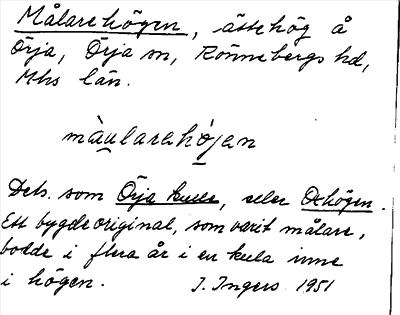 Målarehögen, ättehög å
Örja, Örja sn, Rönnebergs hd,
Mhs län.
màularehöjan
Dets. som Örja kulle, eller Ochögen.
Ett bygdeoriginal, som varit målare,
bodde i flera år i en kula inne
i högen. I. Ingers 1951